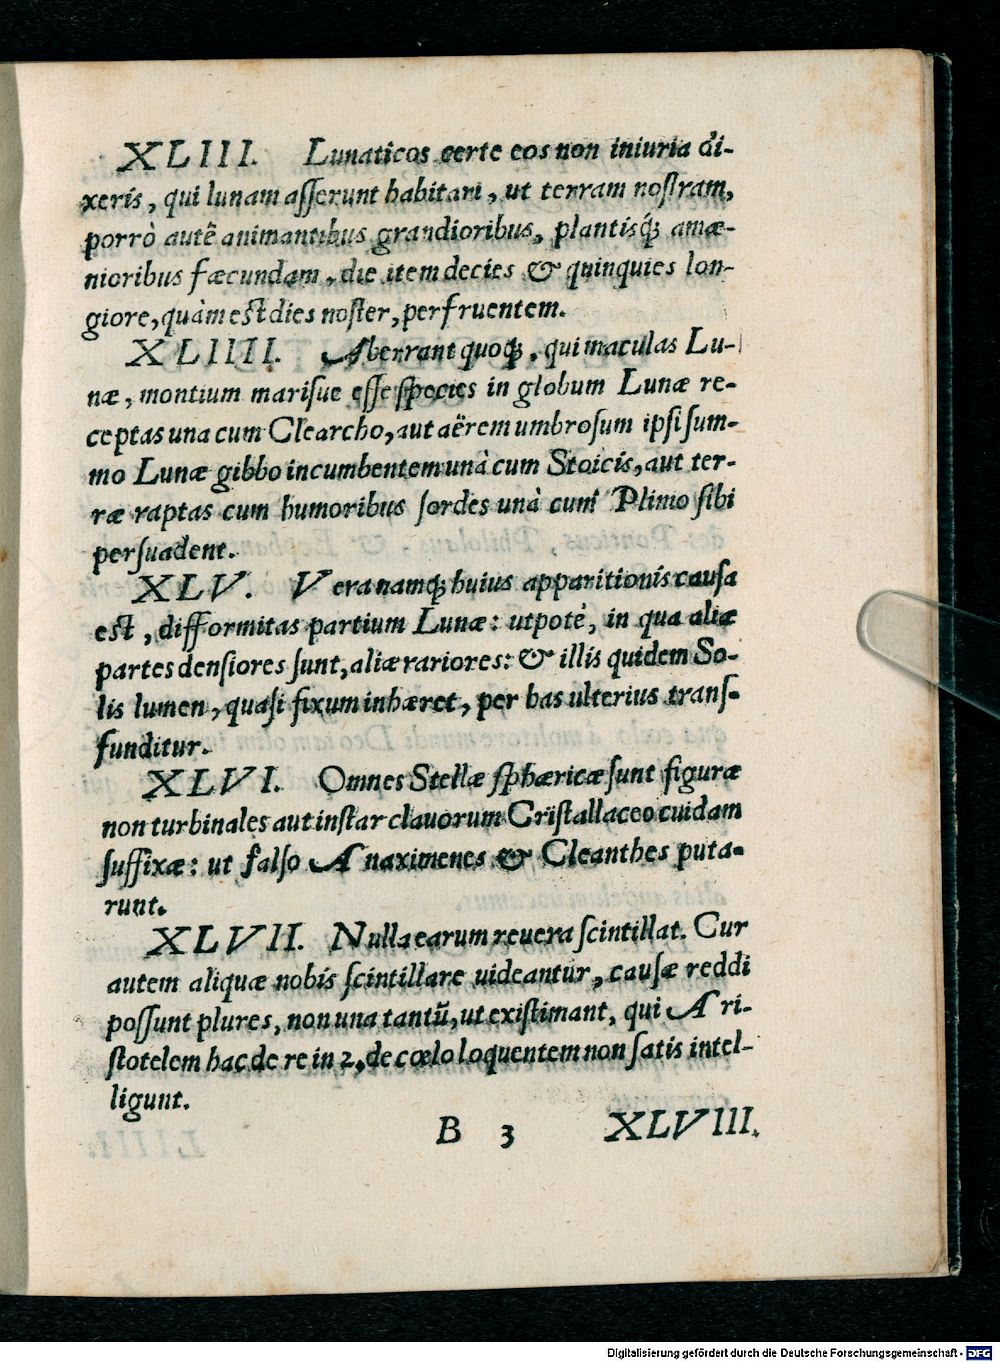 XLIII. Lunaticos certe eos non iniuria di-
xeris, qui lunam asserunt habitari, ut terram nostram,
porrò autē animantibus grandioribus, plantisq́; amæ-
nioribus fæcundam, die item decies & quinquies lon-
giore, quàm est dies noster, perfruentem.
XLIIII. Aberrant quoq;, qui maculas Lu-
næ, montium marisue esse species in globum Lunæ re-
ceptas una cum Clearcho, aut aërem umbrosum ipsi sum-
mo Lunæ gibbo incumbentem unà cum Stoicis, aut ter-
ræ raptas cum humoribus sordes unà cum Plinio sibi
persuadent.
XLV. Vera namq; huius apparitionis causa
est, difformitas partium Lunæ: utpotè, in qua aliæ
partes densiores sunt, aliæ rariores: & illis quidem So-
lis lumen, quasi fixum inhæret, per has ulterius trans-
funditur.
XLVI. Omnes Stellæ sphæricæ sunt figuræ
non turbinales aut instar clauorum Cristallaceo cuidam
suffixæ: ut falso Anaximenes & Cleanthes puta-
runt.
XLVII. Nulla earum reuera scintillat. Cur
autem aliquæ nobis scintillare uideantur, causæ reddi
possunt plures, non una tantū, ut existimant, qui Ari-
stotelem hac de re in 2, de cœlo loquentem non satis intel-
ligunt.
B 3 XLVIII.
Digitalisierung gefördert durch die Deutsche Forschungsgemeinschaft - DFG